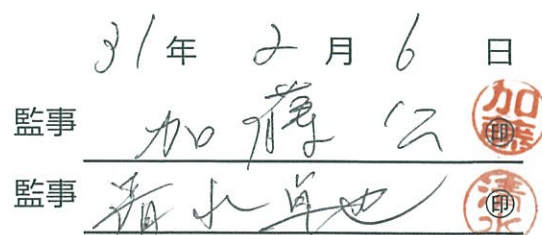 31年 2月 6日
監事 加藤 公 加藤 ㊞
監事 清水卓也 清水 ㊞